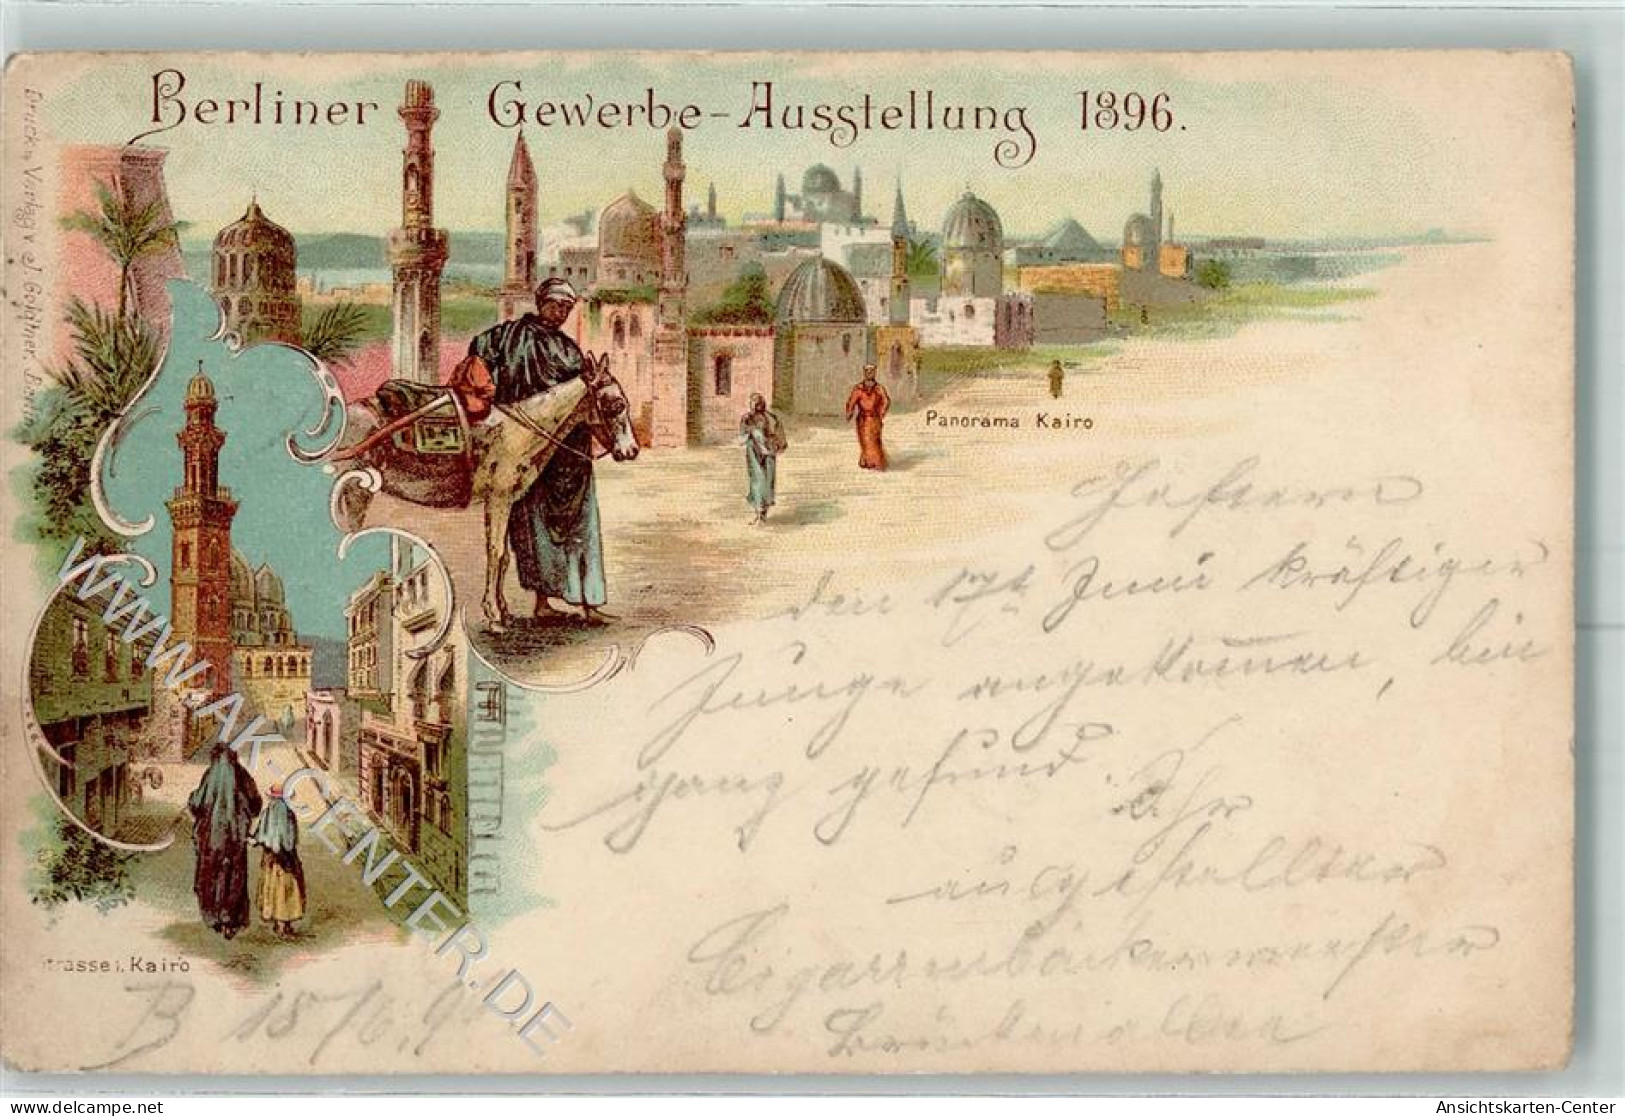 Berliner Gewerbe-Ausstellung 1896.
Druck u. Verlag v. J. Goldiner, Berlin
Panorama Kairo
Gestern
den 17t Juni kräftiger
Junge angekom̅en, bin
ganz gesund.
Ihr
ausgestellter
Cigarrenbäckermeister
trasse i. Kairo
B 18/6. 9
WWW.AK-CENTER.DE
delcampe.net
Ansichtskarten-Center